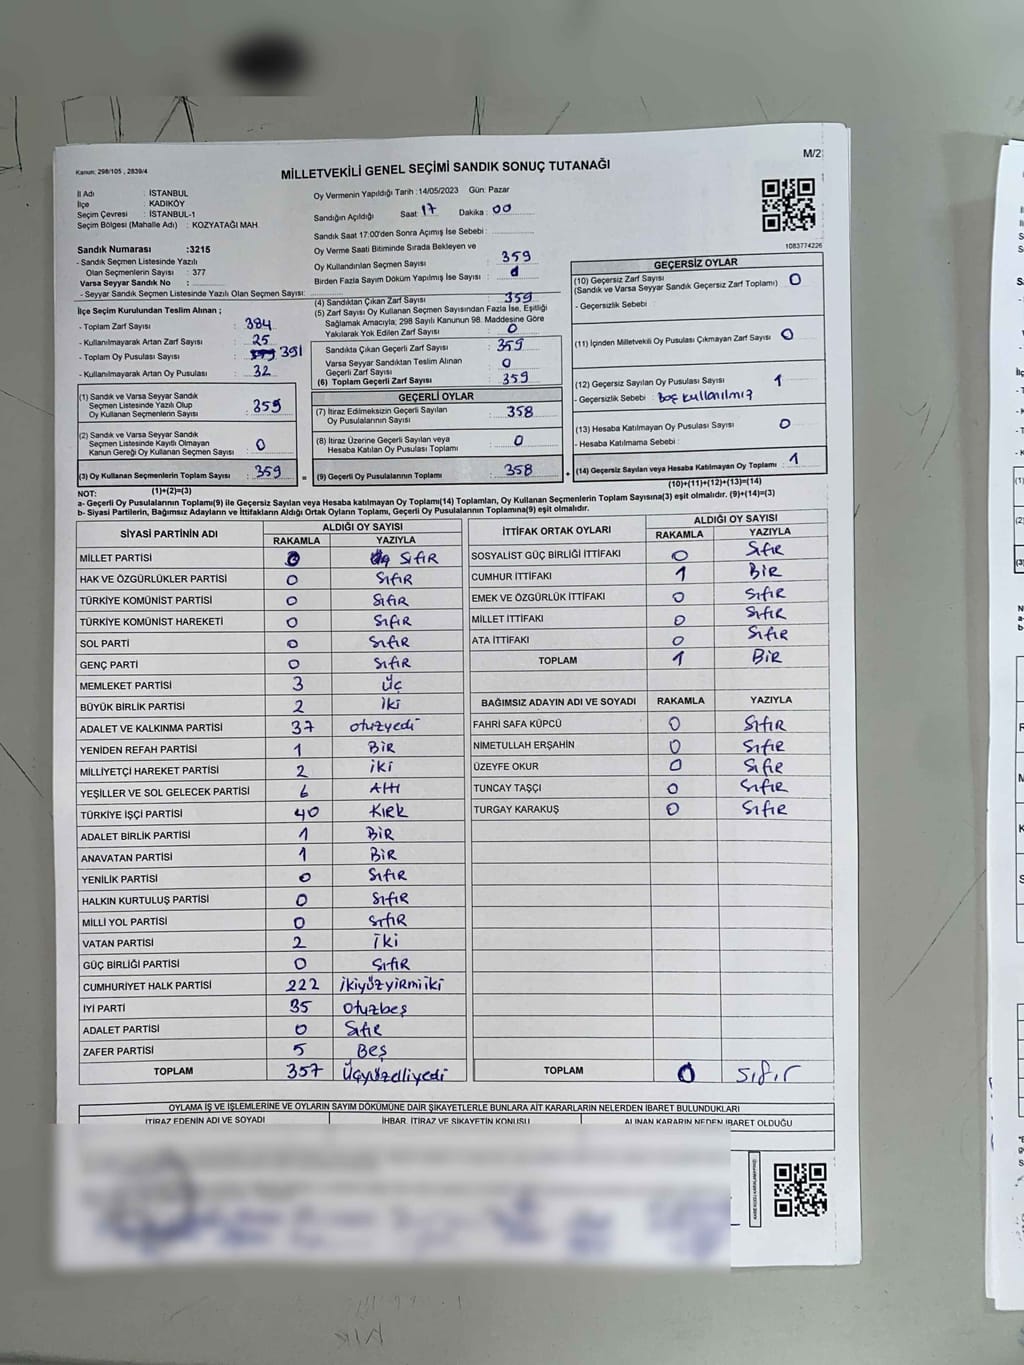 M/2
Kanun: 298/105 , 2839/4
MİLLETVEKİLİ GENEL SEÇİMİ SANDIK SONUÇ TUTANAĞI
İl Adı : İSTANBUL
İlçe : KADIKÖY
Seçim Çevresi : İSTANBUL-1
Seçim Bölgesi (Mahalle Adı) : KOZYATAĞI MAH.
Sandık Numarası :3215
- Sandık Seçmen Listesinde Yazılı
Olan Seçmenlerin Sayısı : 377
Varsa Seyyar Sandık No :
- Seyyar Sandık Seçmen Listesinde Yazılı Olan Seçmen Sayısı:
İlçe Seçim Kurulundan Teslim Alınan ;
- Toplam Zarf Sayısı : 384
- Kullanılmayarak Artan Zarf Sayısı : 25
- Toplam Oy Pusulası Sayısı : 391
- Kullanılmayarak Artan Oy Pusulası : 32
(1) Sandık ve Varsa Seyyar Sandık
Seçmen Listesinde Yazılı Olup
Oy Kullanan Seçmenlerin Sayısı : 359
(2) Sandık ve Varsa Seyyar Sandık
Seçmen Listesinde Kayıtlı Olmayan
Kanun Gereği Oy Kullanan Seçmen Sayısı : 0
(3) Oy Kullanan Seçmenlerin Toplam Sayısı : 359
(1)+(2)=(3)
Oy Vermenin Yapıldığı Tarih :14/05/2023 Gün: Pazar
Sandığın Açıldığı Saat 17 Dakika : 00
Sandık Saat 17:00'den Sonra Açımış İse Sebebi :
Oy Verme Saati Bitiminde Sırada Bekleyen ve
Oy Kullandırılan Seçmen Sayısı : 359
Birden Fazla Sayım Döküm Yapılmış İse Sayısı :
(4) Sandıktan Çıkan Zarf Sayısı : 359
(5) Zarf Sayısı Oy Kullanan Seçmen Sayısından Fazla İse, Eşitliği
Sağlamak Amacıyla; 298 Sayılı Kanunun 98. Maddesine Göre
Yakılarak Yok Edilen Zarf Sayısı : 0
Sandıkta Çıkan Geçerli Zarf Sayısı : 359
Varsa Seyyar Sandıktan Teslim Alınan
Geçerli Zarf Sayısı : 0
(6) Toplam Geçerli Zarf Sayısı : 359
GEÇERLİ OYLAR
(7) İtiraz Edilmeksizin Geçerli Sayılan
Oy Pusulalarının Sayısı : 358
(8) İtiraz Üzerine Geçerli Sayılan veya
Hesaba Katılan Oy Pusulası Toplamı : 0
= (9) Geçerli Oy Pusulalarının Toplamı : 358
1083774226
GEÇERSİZ OYLAR
(10) Geçersiz Zarf Sayısı : 0
(Sandık ve Varsa Seyyar Sandık Geçersiz Zarf Toplamı)
- Geçersizlik Sebebi :
(11) İçinden Milletvekili Oy Pusulası Çıkmayan Zarf Sayısı : 0
(12) Geçersiz Sayılan Oy Pusulası Sayısı : 1
- Geçersizlik Sebebi : Boş kullanılmış
(13) Hesaba Katılmayan Oy Pusulası Sayısı : 0
- Hesaba Katılmama Sebebi :
+ (14) Geçersiz Sayılan veya Hesaba Katılmayan Oy Toplamı : 1
(10)+(11)+(12)+(13)=(14)
NOT:
a- Geçerli Oy Pusulalarının Toplamı(9) ile Geçersiz Sayılan veya Hesaba katılmayan Oy Toplamı(14) Toplamları, Oy Kullanan Seçmenlerin Toplam Sayısına(3) eşit olmalıdır. (9)+(14)=(3)
b- Siyasi Partilerin, Bağımsız Adayların ve İttifakların Aldığı Ortak Oyların Toplamı, Geçerli Oy Pusulalarının Toplamına(9) eşit olmalıdır.
SİYASİ PARTİNİN ADI ALDIĞI OY SAYISI
RAKAMLA YAZIYLA
MİLLET PARTİSİ 0 SIFIR
HAK VE ÖZGÜRLÜKLER PARTİSİ 0 SIFIR
TÜRKİYE KOMÜNİST PARTİSİ 0 SIFIR
TÜRKİYE KOMÜNİST HAREKETİ 0 SIFIR
SOL PARTİ 0 SIFIR
GENÇ PARTİ 0 SIFIR
MEMLEKET PARTİSİ 3 ÜÇ
BÜYÜK BİRLİK PARTİSİ 2 İki
ADALET VE KALKINMA PARTİSİ 37 otuzyedi
YENİDEN REFAH PARTİSİ 1 BİR
MİLLİYETÇİ HAREKET PARTİSİ 2 iki
YEŞİLLER VE SOL GELECEK PARTİSİ 6 Altı
TÜRKİYE İŞÇİ PARTİSİ 40 Kırk
ADALET BİRLİK PARTİSİ 1 BİR
ANAVATAN PARTİSİ 1 BİR
YENİLİK PARTİSİ 0 SIFIR
HALKIN KURTULUŞ PARTİSİ 0 SIFIR
MİLLİ YOL PARTİSİ 0 SIFIR
VATAN PARTİSİ 2 İki
GÜÇ BİRLİĞİ PARTİSİ 0 SIFIR
CUMHURİYET HALK PARTİSİ 222 ikiyüzyirmiiki
İYİ PARTİ 35 otuzbeş
ADALET PARTİSİ 0 SIFIR
ZAFER PARTİSİ 5 BEŞ
TOPLAM 357 Üçyüzelliyedi
İTTİFAK ORTAK OYLARI ALDIĞI OY SAYISI
RAKAMLA YAZIYLA
SOSYALİST GÜÇ BİRLİĞİ İTTİFAKI 0 SIFIR
CUMHUR İTTİFAKI 1 BİR
EMEK VE ÖZGÜRLÜK İTTİFAKI 0 SIFIR
MİLLET İTTİFAKI 0 SIFIR
ATA İTTİFAKI 0 SIFIR
TOPLAM 1 BİR
BAĞIMSIZ ADAYIN ADI VE SOYADI RAKAMLA YAZIYLA
FAHRİ SAFA KÜPCÜ 0 SIFIR
NİMETULLAH ERŞAHİN 0 SIFIR
ÜZEYFE OKUR 0 SIFIR
TUNCAY TAŞÇI 0 SIFIR
TURGAY KARAKUŞ 0 SIFIR
TOPLAM 0 sıfır
OYLAMA İŞ VE İŞLEMLERİNE VE OYLARIN SAYIM DÖKÜMÜNE DAİR ŞİKAYETLERLE BUNLARA AİT KARARLARIN NELERDEN İBARET BULUNDUKLARI
İTİRAZ EDENİN ADI VE SOYADI İHBAR, İTİRAZ VE ŞİKAYETİN KONUSU ALINAN KARARIN NEDEN İBARET OLDUĞU